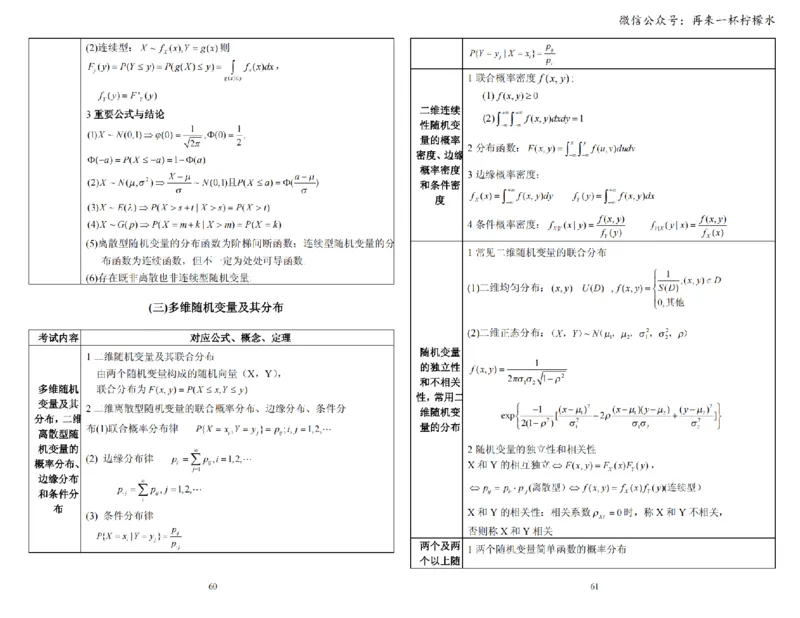 微信公众号：再来一杯柠檬水
(2)连续型：X ~ f_X(x), Y = g(x) 则
F_y(y) = P(Y ≤ y) = P(g(X) ≤ y) = ∫_{g(x)≤y} f_x(x)dx，
f_Y(y) = F'_Y(y)
3 重要公式与结论
(1) X ~ N(0,1) ⇒ φ(0) = 1/√(2π), Φ(0) = 1/2,
Φ(−a) = P(X ≤ −a) = 1−Φ(a)
(2) X ~ N(μ,σ²) ⇒ (X−μ)/σ ~ N(0,1)且P(X ≤ a) = Φ((a−μ)/σ)
(3) X ~ E(λ) ⇒ P(X > s+t | X > s) = P(X > t)
(4) X ~ G(p) ⇒ P(X = m+k | X > m) = P(X = k)
(5)离散型随机变量的分布函数为阶梯间断函数；连续型随机变量的分
布函数为连续函数，但不一定为处处可导函数.
(6)存在既非离散也非连续型随机变量.
(三)多维随机变量及其分布
考试内容 对应公式、概念、定理
多维随机
变量及其
分布，二维
离散型随
机变量的
概率分布、
边缘分布
和条件分
布
1 二维随机变量及其联合分布
由两个随机变量构成的随机向量（X，Y），
联合分布为 F(x,y) = P(X ≤ x,Y ≤ y)
2 二维离散型随机变量的联合概率分布、边缘分布、条件分
布(1)联合概率分布律 P{X = x_i, Y = y_j} = p_ij; i, j = 1,2,⋯
(2) 边缘分布律 p_i· = ∑_{j=1}^{∞} p_ij, i = 1,2,⋯
p_·j = ∑_i^∞ p_ij, j = 1,2,⋯
(3) 条件分布律
P{X = x_i | Y = y_j} = p_ij/p_·j
60
P{Y = y_j | X = x_i} = p_ij/p_i·
二维连续
性随机变
量的概率
密度、边缘
概率密度
和条件密
度
1 联合概率密度 f(x, y):
(1) f(x, y) ≥ 0
(2) ∫_{−∞}^{+∞}∫_{−∞}^{+∞} f(x, y)dxdy = 1
2 分布函数：F(x, y) = ∫_{−∞}^{x}∫_{−∞}^{y} f(u,v)dudv
3 边缘概率密度：
f_X(x) = ∫_{−∞}^{+∞} f(x, y)dy f_Y(y) = ∫_{−∞}^{+∞} f(x, y)dx
4 条件概率密度：f_{X|Y}(x | y) = f(x, y)/f_Y(y) f_{Y|X}(y | x) = f(x, y)/f_X(x)
随机变量
的独立性
和不相关
性，常用二
维随机变
量的分布
1 常见二维随机变量的联合分布
(1)二维均匀分布：(x, y) U(D) , f(x, y) = { 1/S(D), (x, y)∈D
0,其他
(2)二维正态分布：(X，Y) ~ N(μ₁，μ₂，σ₁²，σ₂²，ρ)
f(x, y) = 1/(2πσ₁σ₂√(1−ρ²))
exp{ −1/(2(1−ρ²)) [(x−μ₁)²/σ₁² − 2ρ (x−μ₁)(y−μ₂)/(σ₁σ₂) + (y−μ₂)²/σ₂²] }
2 随机变量的独立性和相关性
X 和 Y 的相互独立 ⇔ F(x, y) = F_X(x)F_Y(y)，
⇔ p_ij = p_i· · p_·j (离散型) ⇔ f(x, y) = f_X(x)f_Y(y)(连续型)
X 和 Y 的相关性：相关系数 ρ_XY = 0 时，称 X 和 Y 不相关，
否则称 X 和 Y 相关
两个及两
个以上随
1 两个随机变量简单函数的概率分布
61